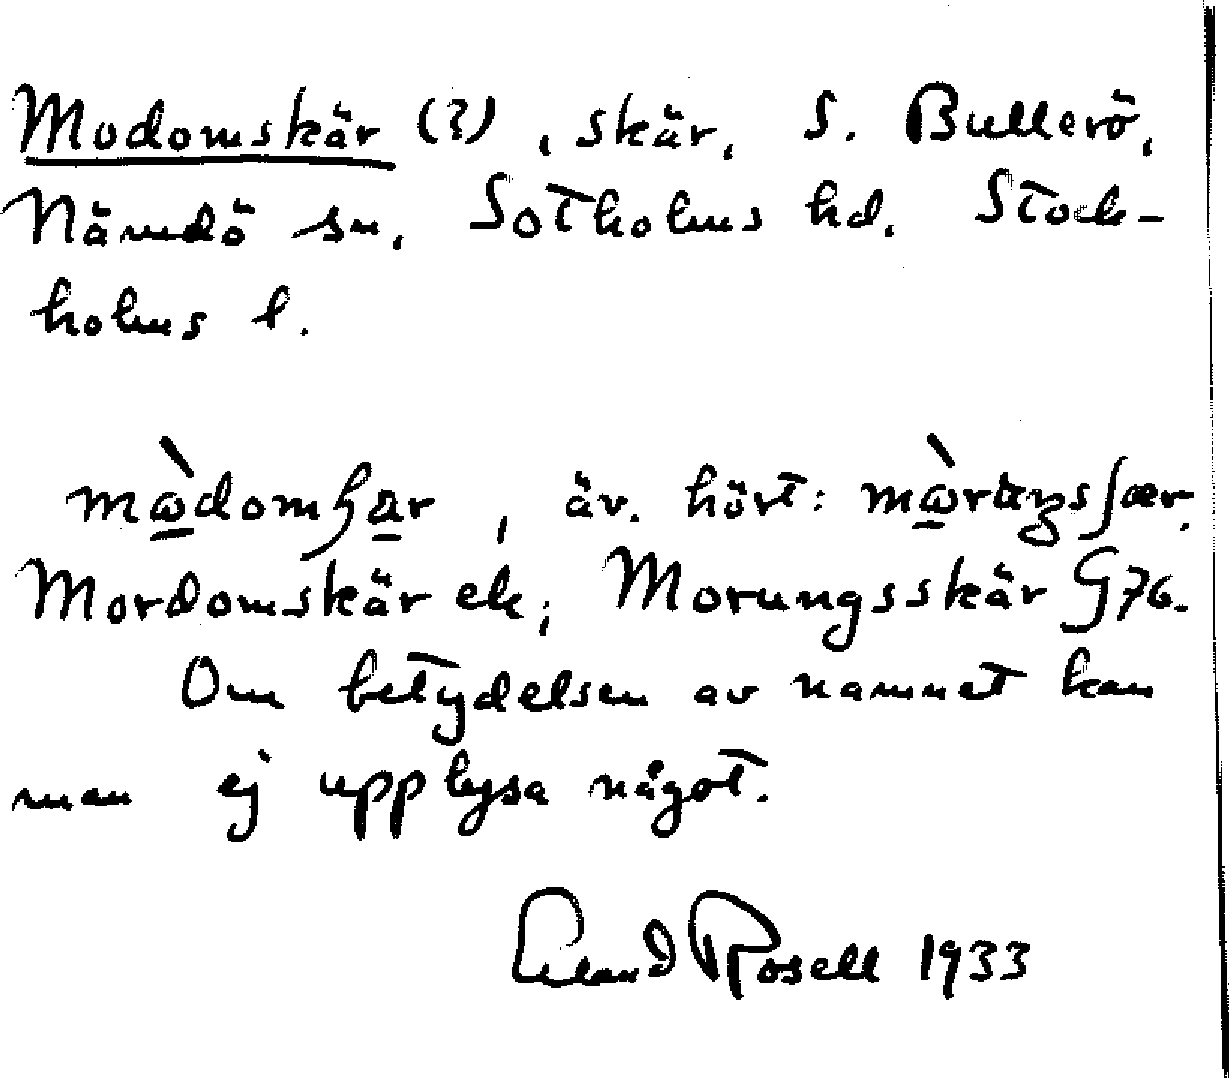 Modomskär (?), skär, S. Bullerö,
Nämdö sn, Sotholms hd. Stock-
holms l.
mὼdomʃar, äv. hört: mὼrɯŋsʃær.
Mordomskär ek; Morungsskär G76.
Om betydelsen av namnet kan
man ej upplysa något.
Erland Rosell 1933